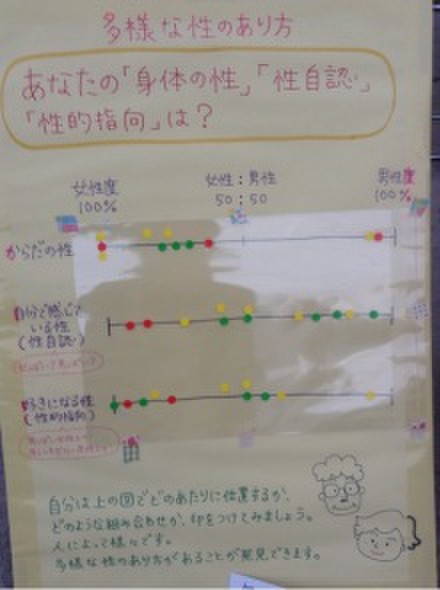 多様な性のあり方
あなたの「身体の性」「性自認」
「性的指向」は？
女性度
100%
女性：男性
50：50
男性度
100%
からだの性
自分で感じて
いる性
(性自認)
好きになる性
(性的指向)
自分は上の図でどのあたりに位置するか、
どのような組み合わせか、印をつけてみましょう。
人によって様々です。
多様な性のあり方があることが発見できます。